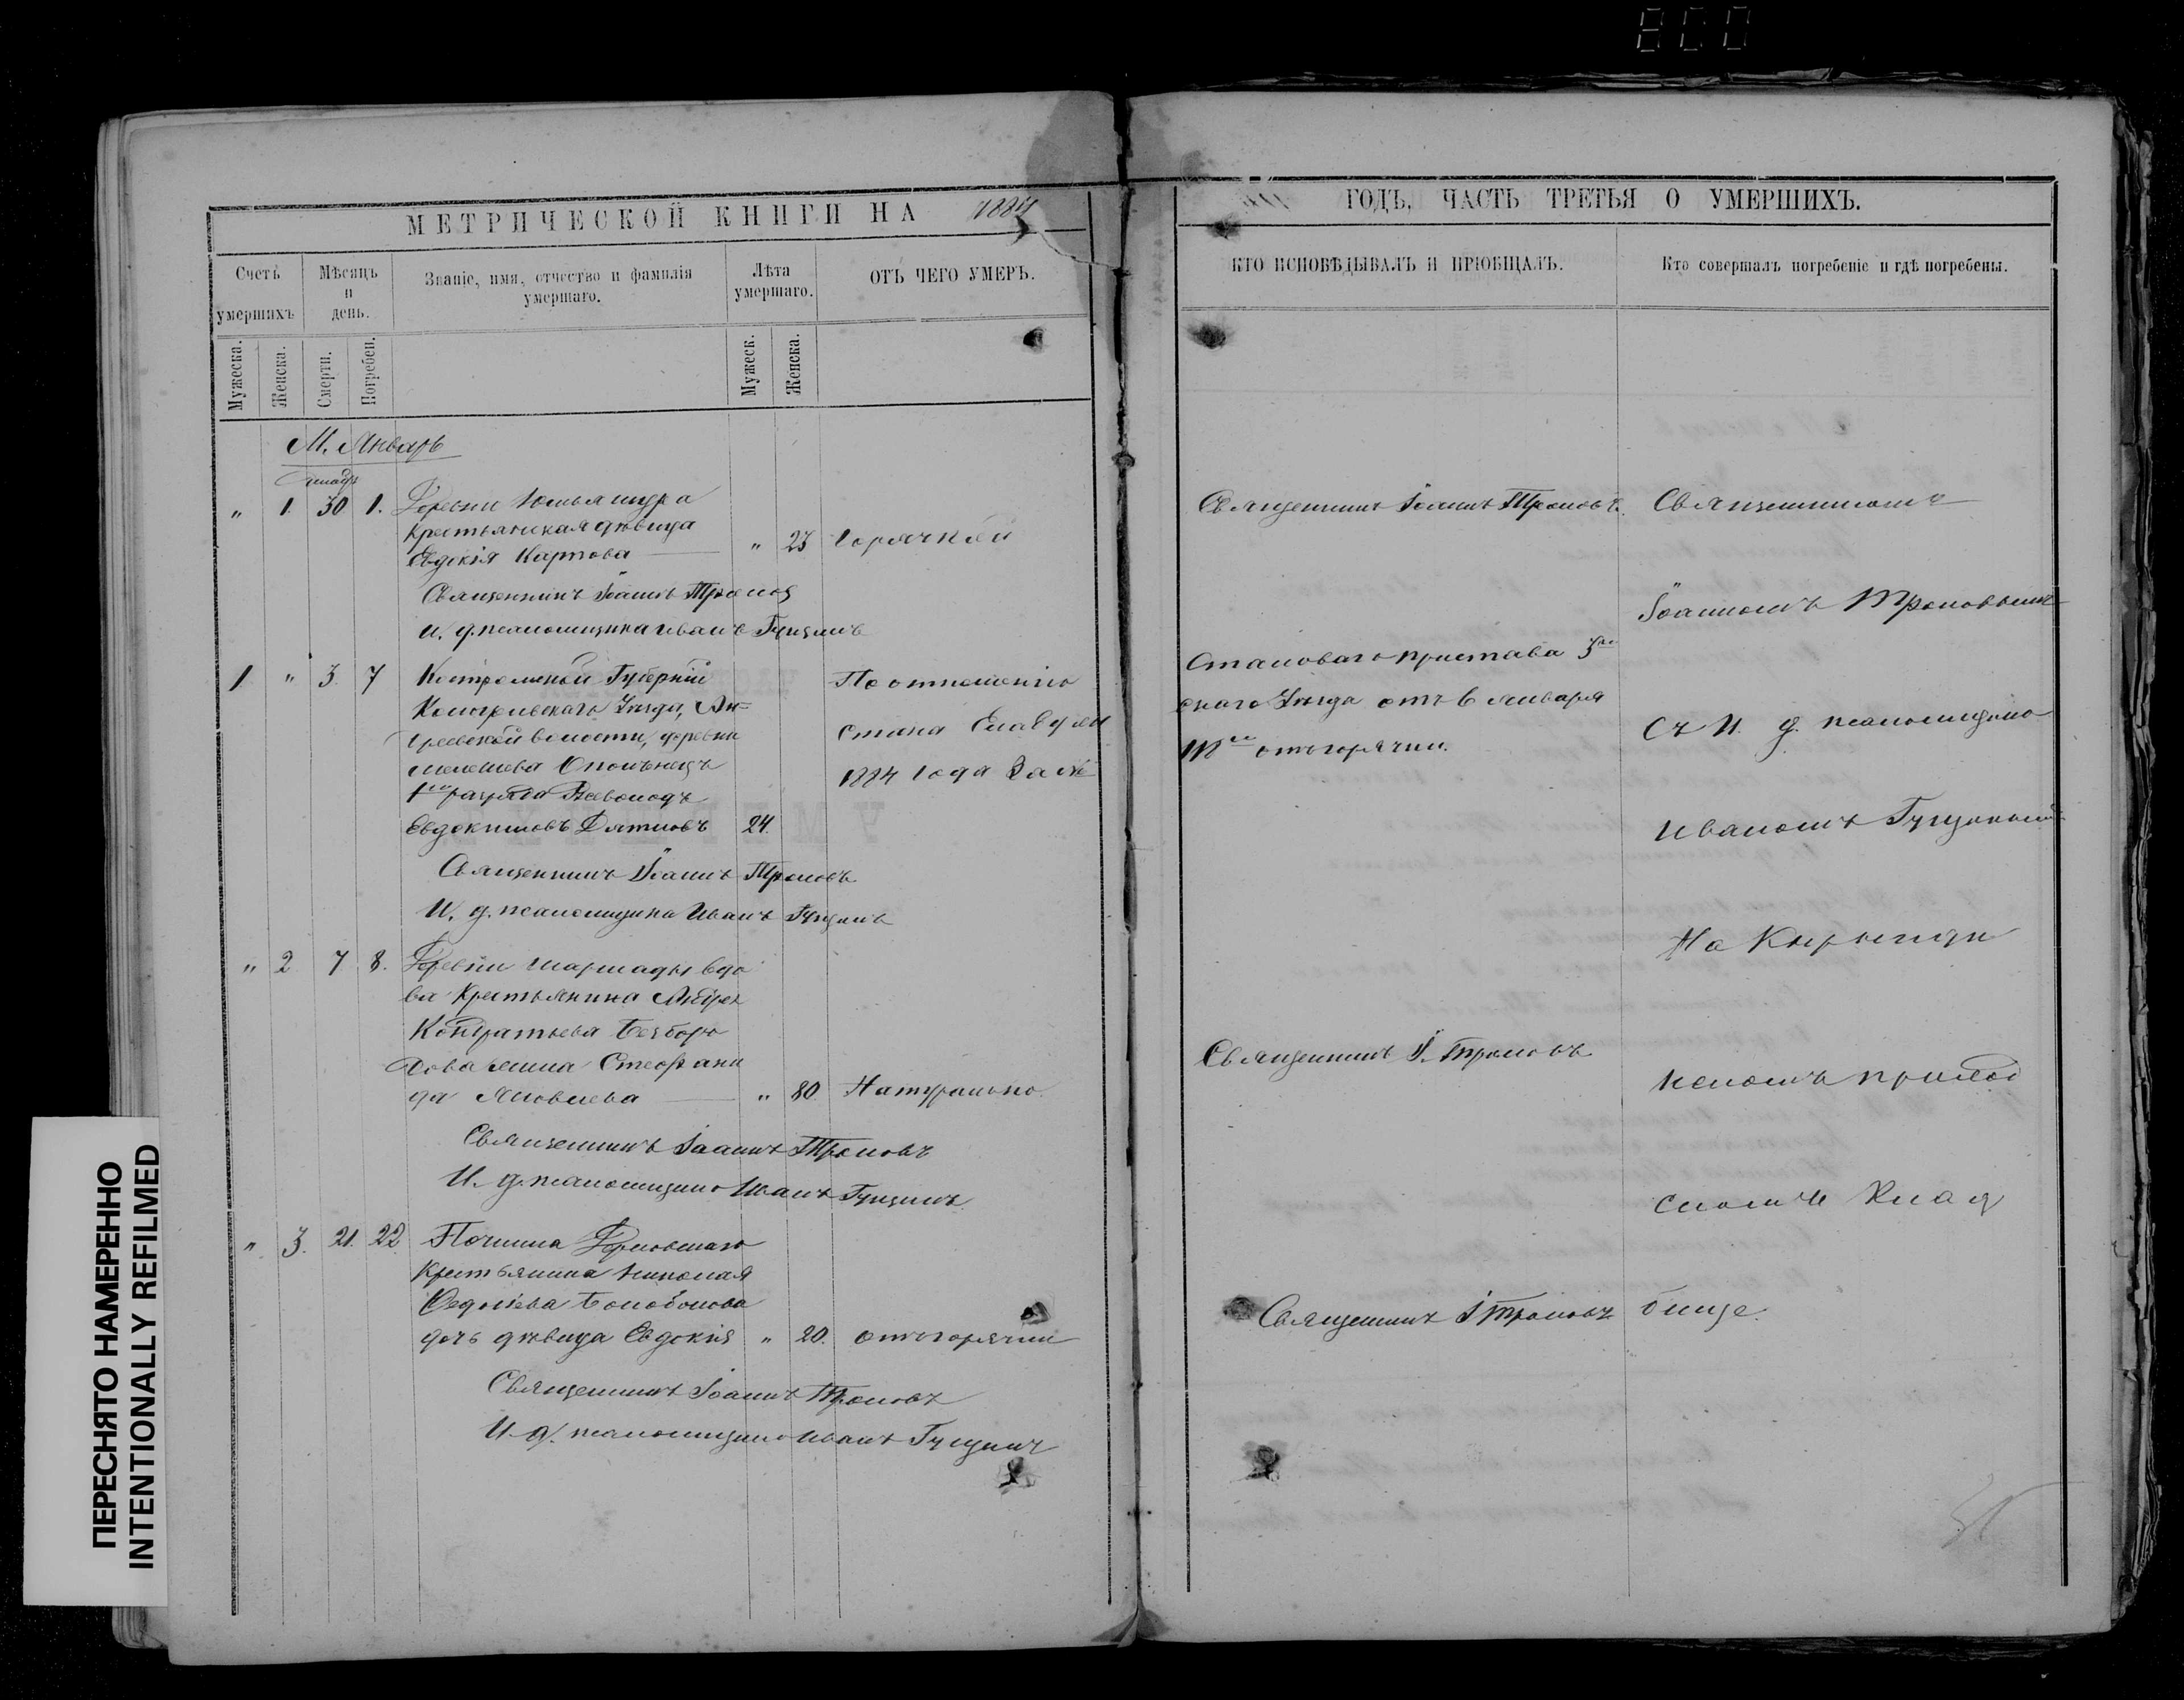 800
МЕТРИЧЕСКОЙ КНИГИ НА 1884
Счетъ умершихъ
Мѣсяцъ и день.
Званіе, имя, отчество и фамилія умершаго.
Лѣта умершаго.
ОТЪ ЧЕГО УМЕРЪ.
Мужеска.
Женска.
Смерти.
Погребен.
Мужеск.
Женска.
М. Январь
" 1. 30 1. Деревни
Крестьянская дѣвица
Евдокія Карпова " 23 Горячкой
Священникъ Іоаннъ Троновъ
И. д. псаломщика Иванъ Гущинъ
1. " 3. 7 Костромской Губерніи По отношенію
Кологривскаго Уѣзда,
волости, деревни стана
1884 года За №
1го разряда Всеволодъ
Евдокимовъ 24.
Священникъ Іоаннъ Троновъ
И. д. псаломщика Иванъ Гущинъ
" 2 7 8. Деревни Шаршады вдо
ва Крестьянина Андрея
Кондратьева Безборо
дова жена Стефани
да Яковлева " 80 Натурально.
Священникъ Іоаннъ Троновъ
И. д. псаломщика Иванъ Гущинъ
" 3. 21. 22 Починка
Крестьянина Николая
дочь дѣвица Евдокія " 20. отъ горячки
Священникъ Іоаннъ Троновъ
И. д. псаломщика Иванъ Гущинъ
ГОДЪ, ЧАСТЬ ТРЕТЬЯ О УМЕРШИХЪ.
КТО ИСПОВѢДЫВАЛЪ И ПРІОБЩАЛЪ.
Кто совершалъ погребеніе и гдѣ погребены.
Священникъ Іоаннъ Троновъ.
Становаго пристава 3го
скаго Уѣзда отъ 6 января
отъ горячки.
Священникъ І. Троновъ
Священникъ І Троновъ
Священникомъ
Іоанномъ Троновымъ
съ И. д. псаломщика
Иваномъ Гущинымъ
На
комъ приход
скомъ клад
бище.
ПЕРЕСНЯТО НАМЕРЕННО
INTENTIONALLY REFILMED